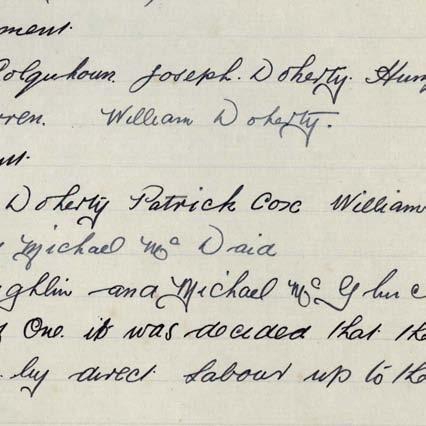 ment.
Colquhoun. Joseph. Doherty. Hum
rren. William Doherty.
nt.
Doherty Patrick Cox William
Michael Mc Daid
ughlin and Michael Mc Glinc
of One. it was decided that the
by direct Labour up to the